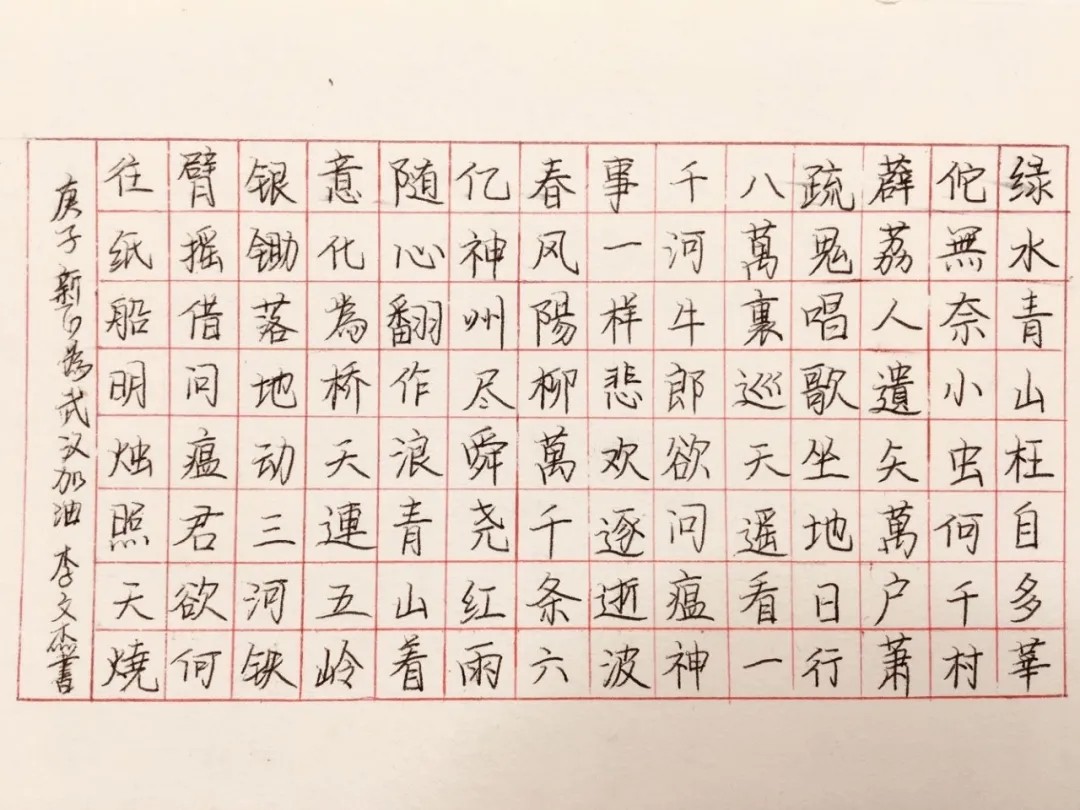 绿水青山枉自多華
佗無奈小虫何千村
薜荔人遺矢萬户萧
疏鬼唱歌坐地日行
八萬裏巡天遥看一
千河牛郎欲问瘟神
事一样悲欢逐逝波
春风陽柳萬千条六
亿神州尽舜尧红雨
随心翻作浪青山着
意化為桥天連五岭
银锄落地动三河铁
臂摇借问瘟君欲何
往纸船明烛照天燒
庚子新為武汉加油 李文杰書